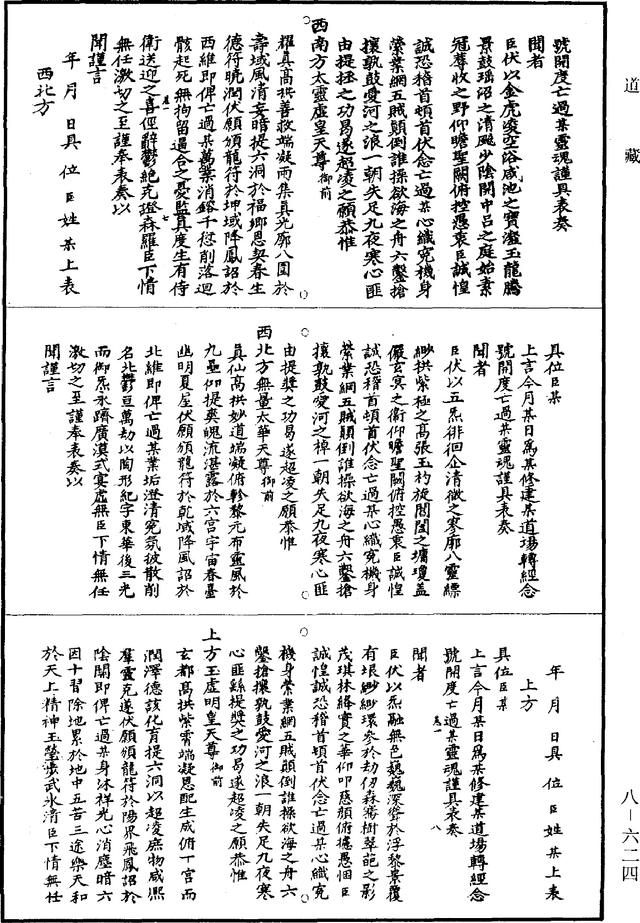 道藏
號開度亡過某靈魂謹具表奏
聞者
臣伏以金虎凌空浴咸池之寶瀣玉龍騰
景鼓瑶沼之清飈少陰開中呂之庭始素
冠蓐收之野仰瞻聖闕俯控愚衷臣誠惶
誠恐稽首頓首伏念亡過某心織寃機身
縈業網五賊顛倒誰操欲海之舟六鑿搶
攘孰鼓愛河之浪一朝失足九夜寒心匪
由提拯之功曷遂超凌之願恭惟
西南方太靈虛皇天尊御前
耀真高拱善救端凝雨集真光廓八圍於
壽域風清妄暗提六洞於福鄉恩契春生
德符曉潤伏願頒龍符於坤域降鳳詔於
西維即俾亡過某萬業消鎔千愆削落迴
骸起死無拘留逼合之憂監真度生有侍
衛送迎之喜徑辭鬱絶克證森羅臣下情
無任激切之至謹奉表奏以
聞謹言
年月日具位臣姓某上表
西北方
具位臣某
上言今月某日爲某修建某道場轉經念
號開度亡過某靈魂謹具表奏
聞者
臣伏以五炁徘徊企清微之寥廓八靈縹
緲拱紫極之高張玉杓旋閶闔之墉瓊蓋
儼玄冥之衛仰瞻聖闕俯控愚衷臣誠惶
誠恐稽首頓首伏念亡過某心織寃機身
縈業網五賊顛倒誰操欲海之舟六鑿搶
攘孰鼓愛河之棹一朝失足九夜寒心匪
由提奬之功曷遂超凌之願恭惟
西北方無量太華天尊御前
真仙高拱妙道端凝俯軫黎元布靈風於
九壘仰提爽魄流湛露於六宫宇宙春臺
幽明夏屋伏願頒龍符於乾域降鳳詔於
北維即俾亡過某業垢澄清寃氛披散削
名北鬱亘萬劫以陶形紀字東華後三光
而御炁永躋廣漠式宴虛無臣下情無任
激切之至謹奉表奏以
聞謹言
年月日具位臣姓某上表
上方
具位臣某
上言今月某日爲某修建某道場轉經念
號開度亡過某靈魂謹具表奏
聞者
臣伏以炁融無色巍巍深窈於浮黎景覆
有垠緲緲環參於劫仞森騫樹翠葩之影
茂琪林絳實之華仰叩慈顔俯攄愚悃臣
誠惶誠恐稽首頓首伏念亡過某心織寃
機身縈業網五賊顛倒誰操欲海之舟六
鑿搶攘孰鼓愛河之浪一朝失足九夜寒
心匪繇提奬之功曷遂超凌之願恭惟
上方玉虛明皇天尊御前
玄都高拱紫霄端凝恩配生成俯丁宫而
潤澤德該化育提六洞以超凌庶物咸熙
羣靈克遂伏願頒龍符於陽界飛鳳詔於
陰關即俾亡過某身沐祥光心消塵暗六
因十習除地累於地中五苦三途樂天和
於天上精神玉瑩步武氷清臣下情無任
八－六二四